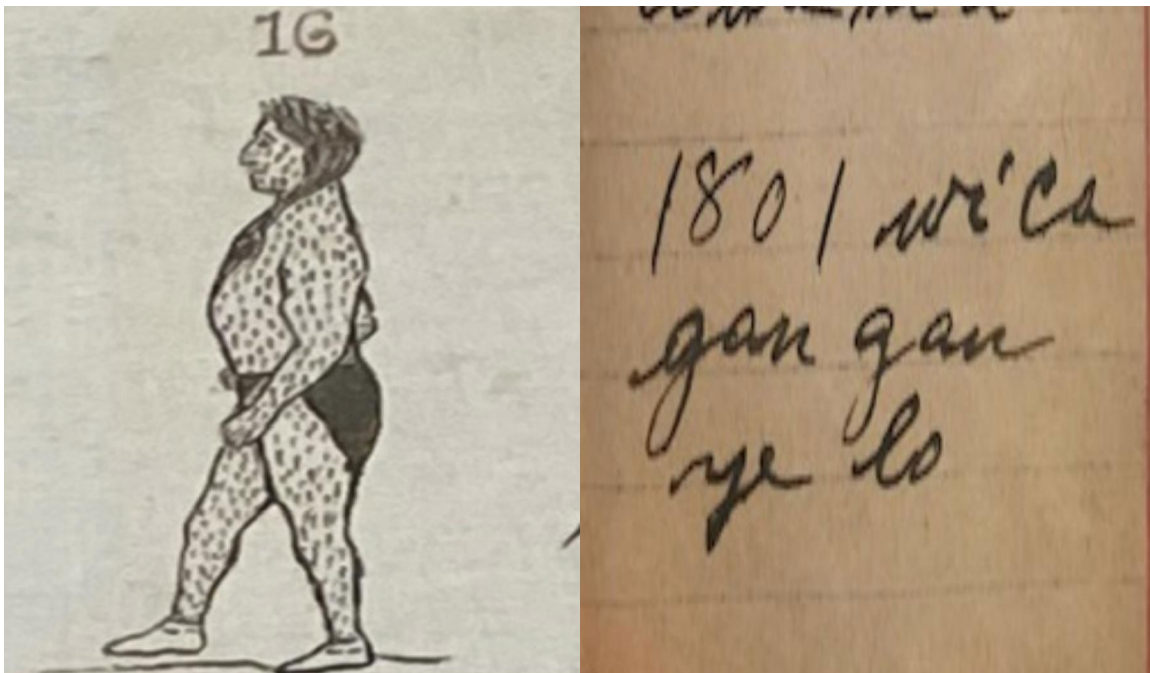 16
1801 wi'ca
gan gan
ye lo